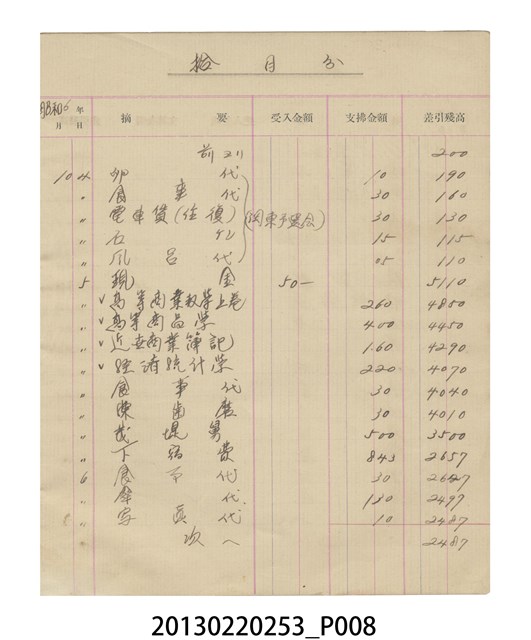 拾月分
昭和6年
月 日 摘要 受入金額 支拂金額 差引殘高
前ヨリ 200
10 4 卯代 10 190
〃 食事代 30 160
〃 電車賃(往復) (関東予選会) 30 130
〃 石ケン 15 115
〃 風呂代 05 110
5 現金 50— 5110
∨ 〃 高等商業数学上巻 260 4850
∨ 〃 高等商品学 400 4450
∨ 〃 近世商業簿記 160 4290
∨ 〃 経済統計学 220 4070
〃 食事代 30 4040
〃 30 4010
〃 500 3500
〃 下宿費 843 2657
6 食事代 30 2627
〃 代 130 2497
〃 写真代 10 2487
次へ 2487
20130220253_P008